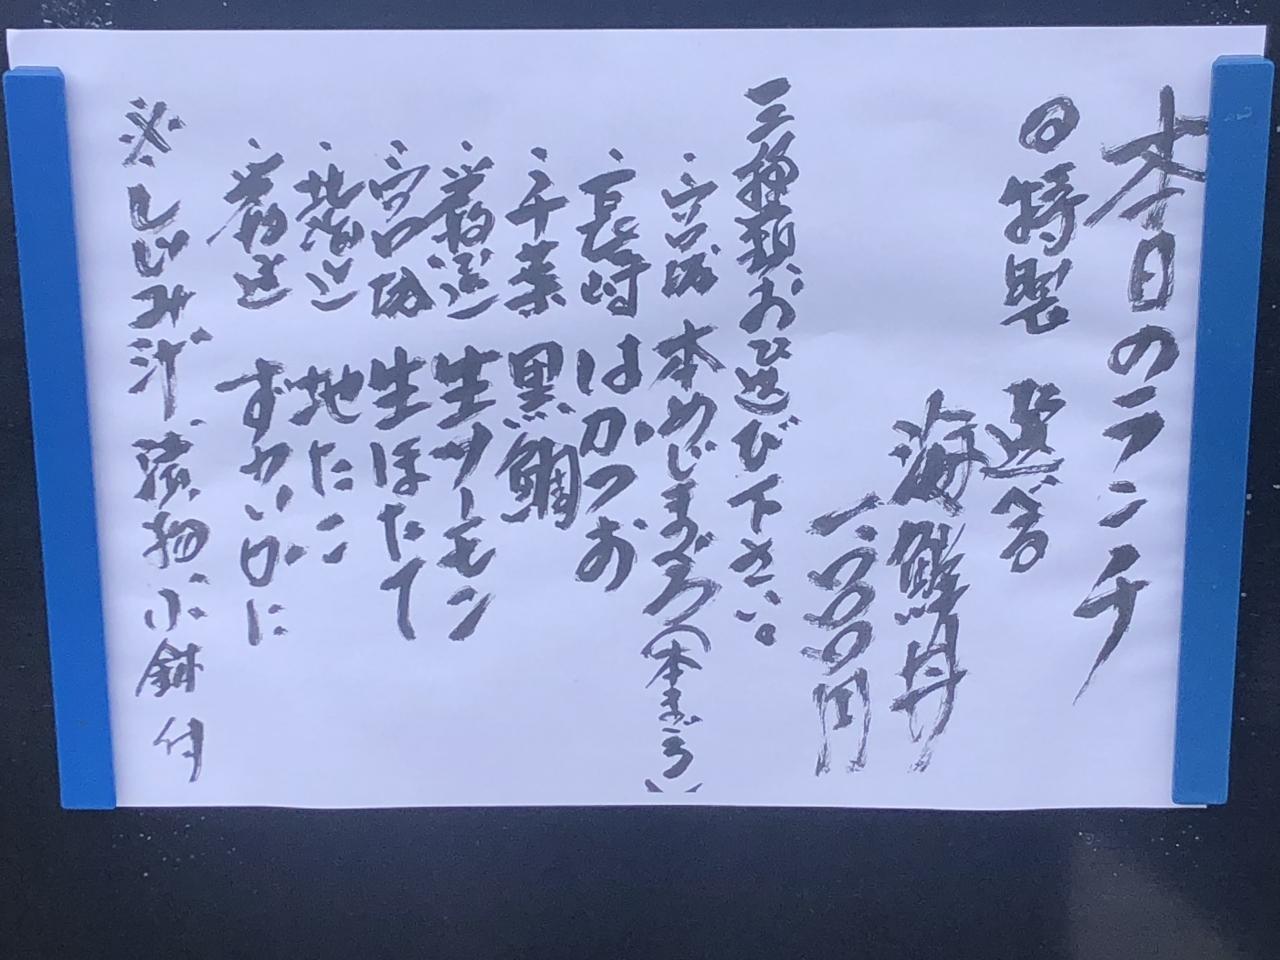 本日のランチ
◎特製 選べる
海鮮丼
一、〇〇〇円
三種類、お選び下さい。
・宮城 本めじまぐろ（本まぐろ）
・長崎 はがつお
・千葉 黒鯛
・厳選 生サーモン
・宮城 生ほたて
・北海道 地たこ
・厳選 ずわいがに
※しじみ汁、漬物、小鉢付